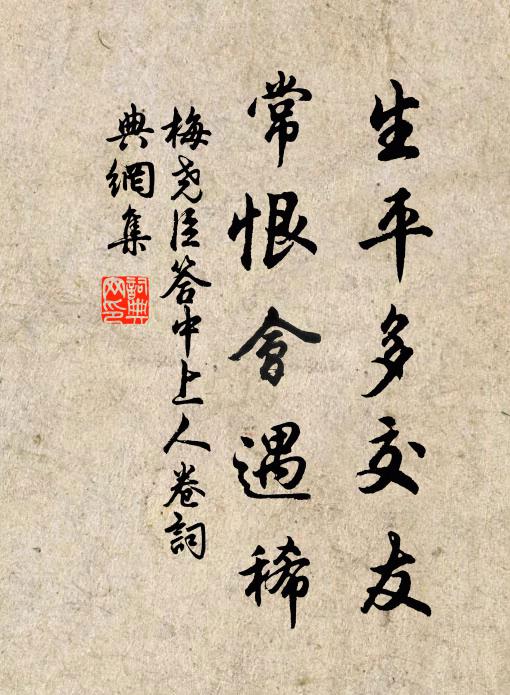 生平多交友
常恨會遇稀
梅堯臣答中上人卷詞
典網集
詞典
网印